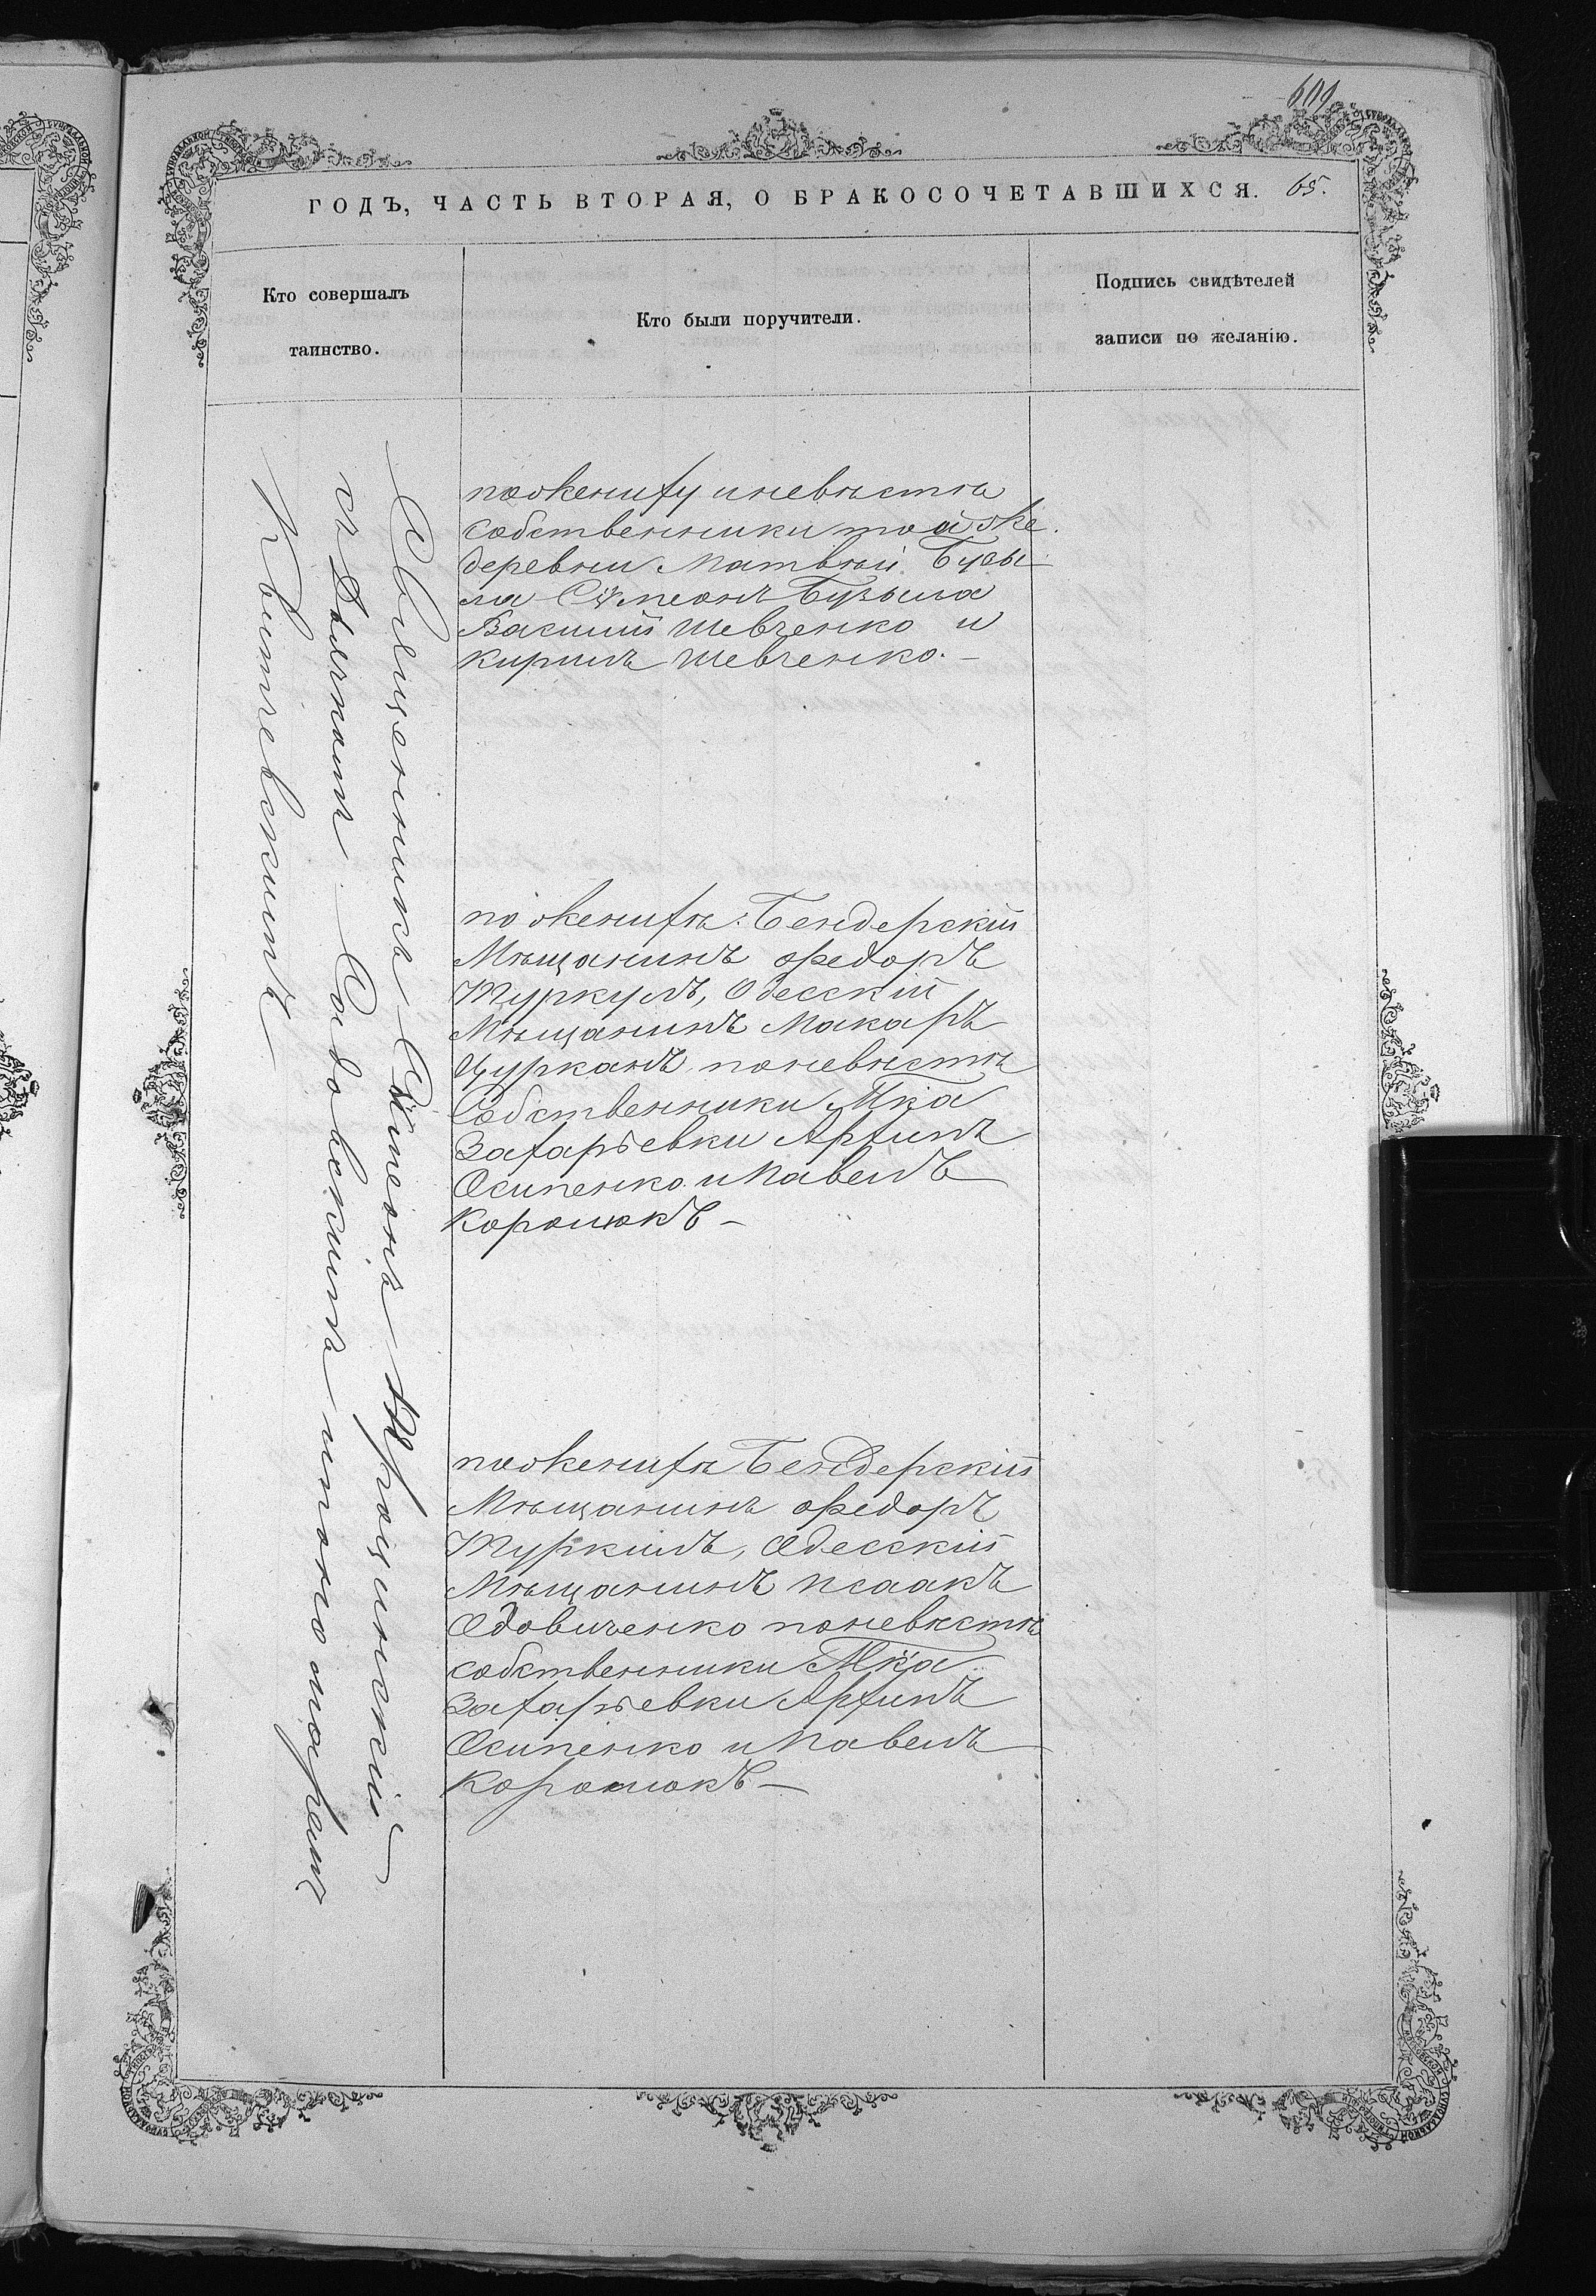 609
ГОДЪ, ЧАСТЬ ВТОРАЯ, О БРАКОСОЧЕТАВШИХСЯ. 65.
Кто совершалъ
таинство.
Кто были поручители.
Подпись свидѣтелей
записи по желанію.
Священникъ Сѵмеонъ
съ Садовскимъ и
пожениху иневѣстѣ
собственники той же
деревни Матвѣй Бузы-
ла Сѵмеонъ Бузыла
Василій Шевченко и
Кирилъ Шевченко. –
по женихѣ: Бендерскій
Мѣщанинъ Федоръ
Туркулъ, Одесскій
Мѣщанинъ Макаръ
Цурканъ, поневѣстѣ
Собственники Мка
Захарьевки Архипъ
Осипенко и Павелъ
Королюкъ –
поженихѣ Бендерскій
Мѣщанинъ Федоръ
Туркилъ, Одесскій
Мѣщанинъ Исаакъ
Одовиченко поневѣстѣ
собственники Мка
Захарьевки Архипъ
Осипенко и Павелъ
Королюкъ –